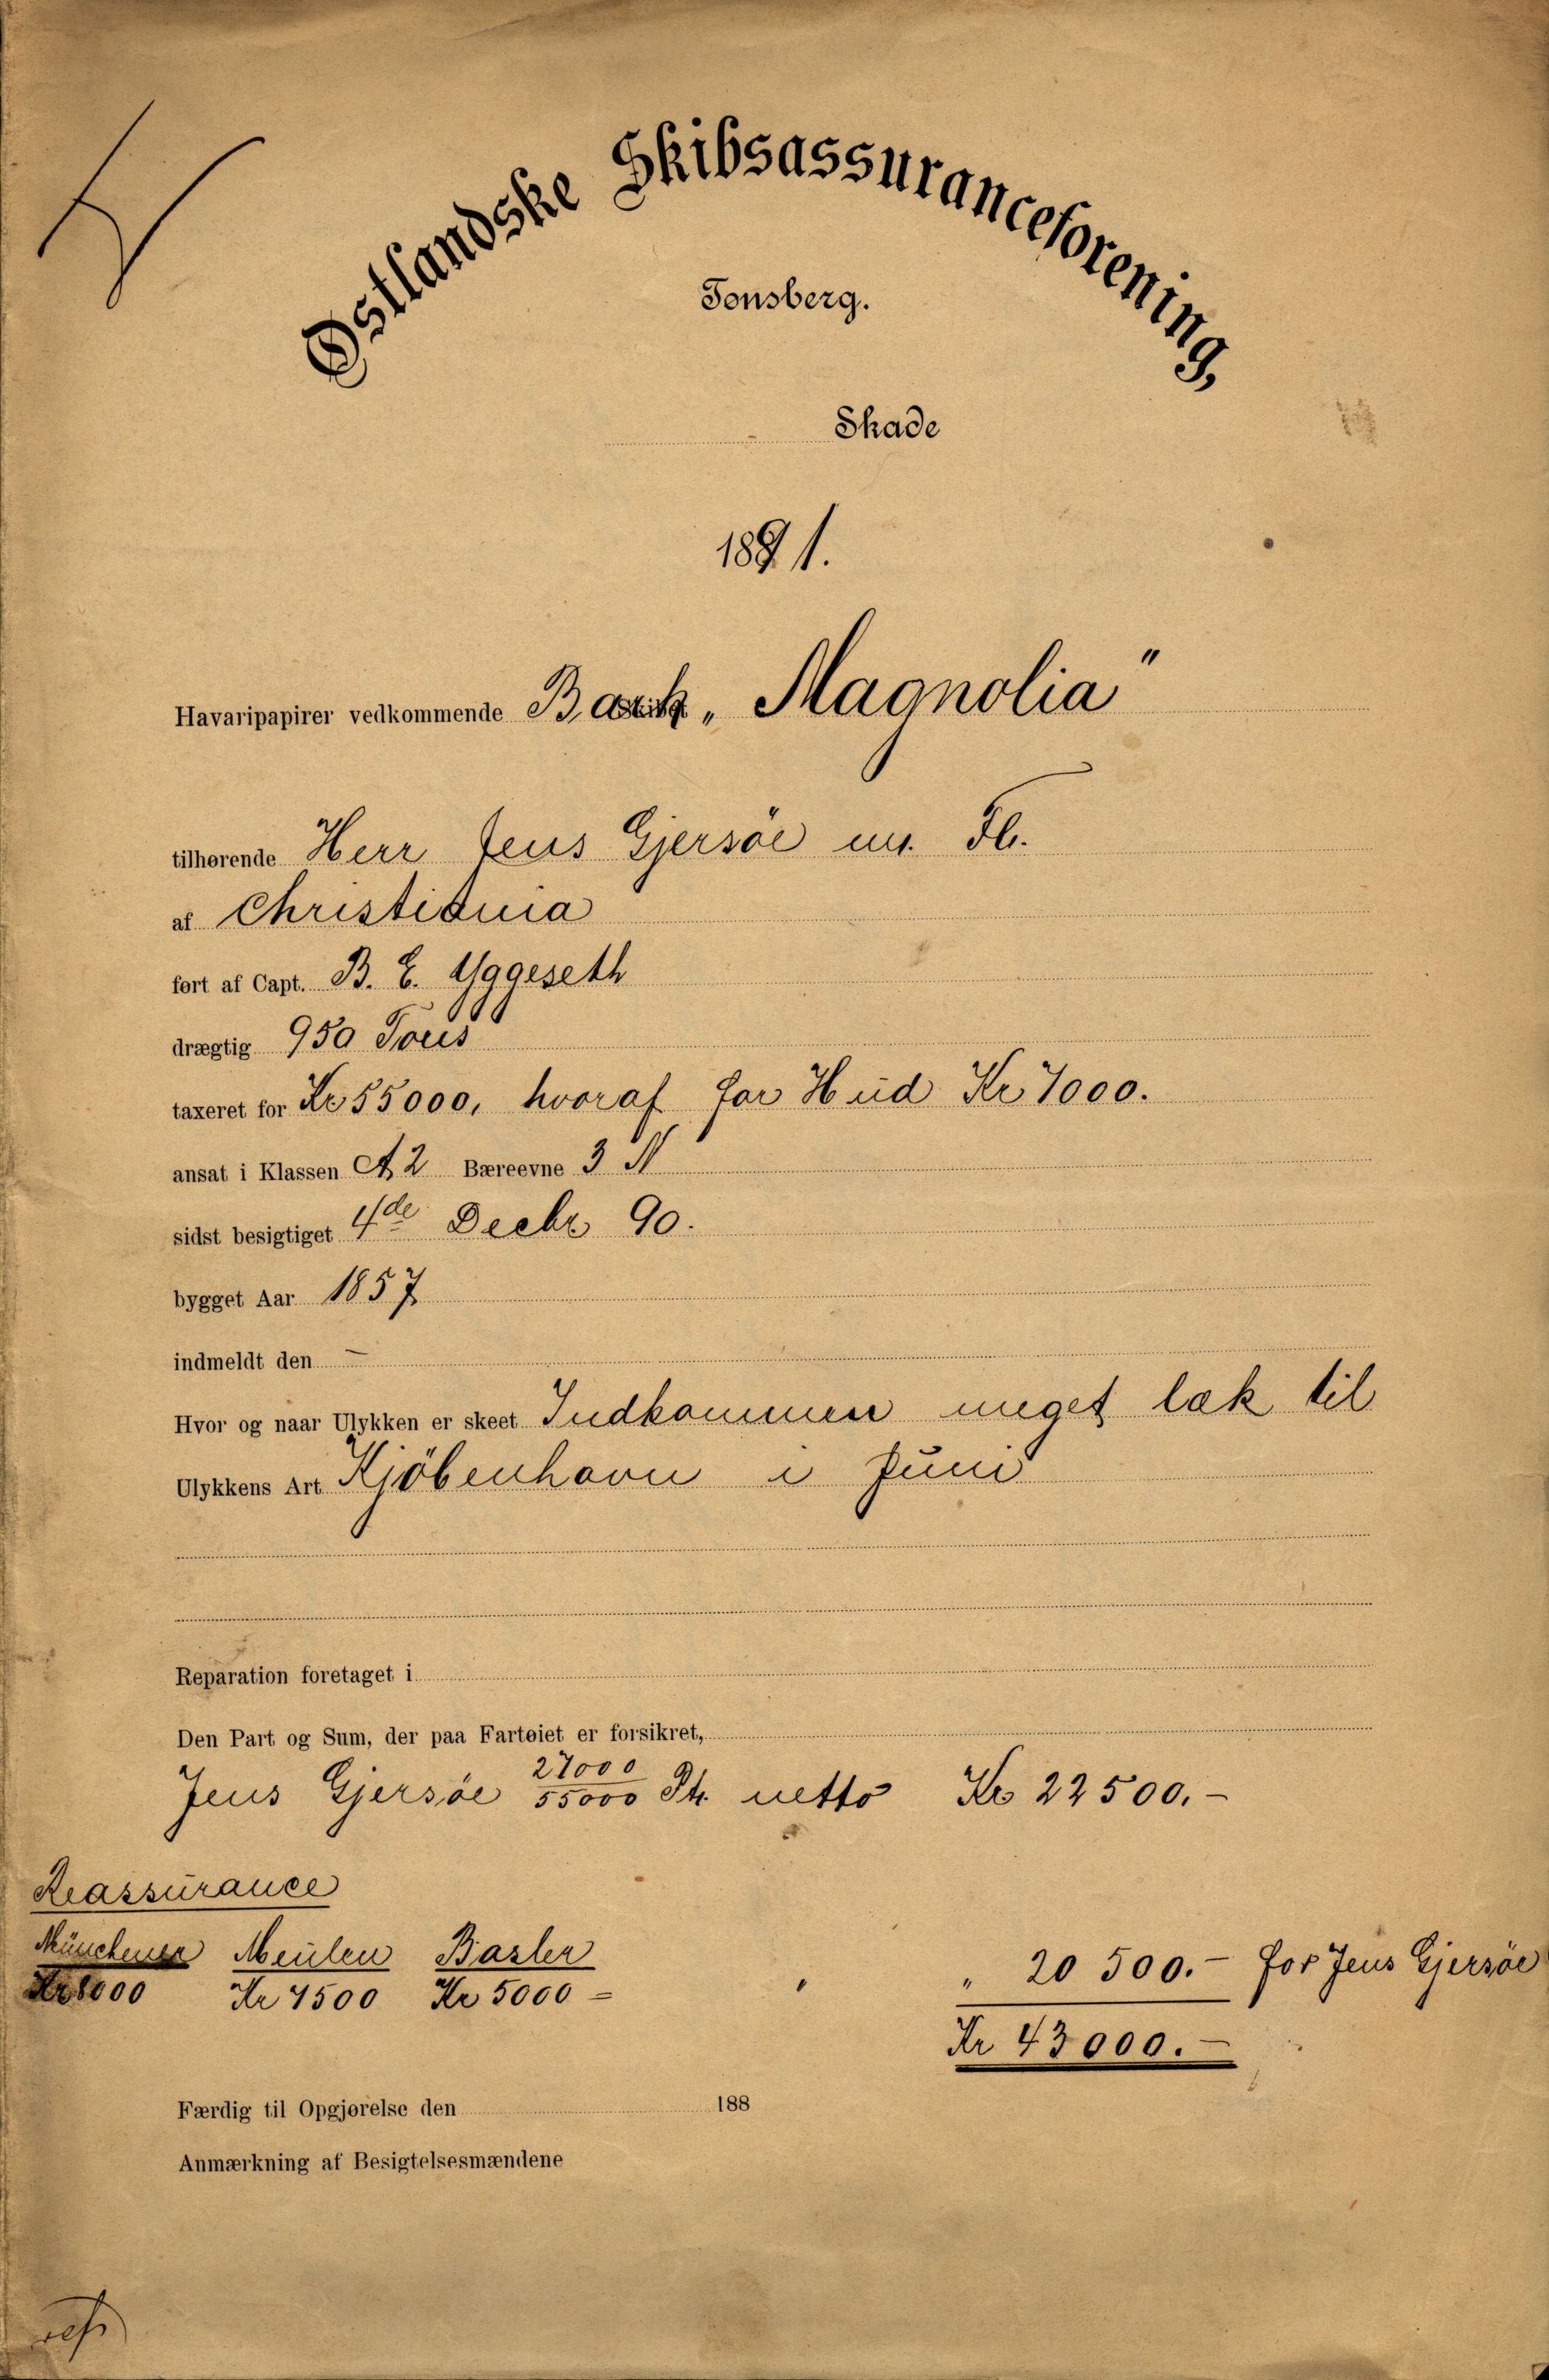 Østlandske Skibsassuranceforening,
Tønsberg.
Skade
1891.
Havaripapirer vedkommende Bark „Magnolia"
tilhørende Herr Jens Gjersöe m. Fl.
af Christiania
ført af Capt. B. E. Yggeseth
drægtig 950 Tons
taxeret for Kr 55000, hvoraf for Hud Kr 7000.
ansat i Klassen A 2 Bæreevne 3 N
sidst besigtiget 4de Decbr 90.
bygget Aar 1857
indmeldt den —
Hvor og naar Ulykken er skeet Indkommen meget læk til
Ulykkens Art Kjöbenhavn i Juni
Reparation foretaget i
Den Part og Sum, der paa Fartøiet er forsikret,
Jens Gjersöe 27000/55000 Pt. netto Kr 22500.-
Reassurance
Münchener Meulen Basler
Kr 8000 Kr 7500 Kr 5000 = „ 20 500.- for Jens Gjersöe
Kr 43000.-
Færdig til Opgjørelse den 188
Anmærkning af Besigtelsesmændene